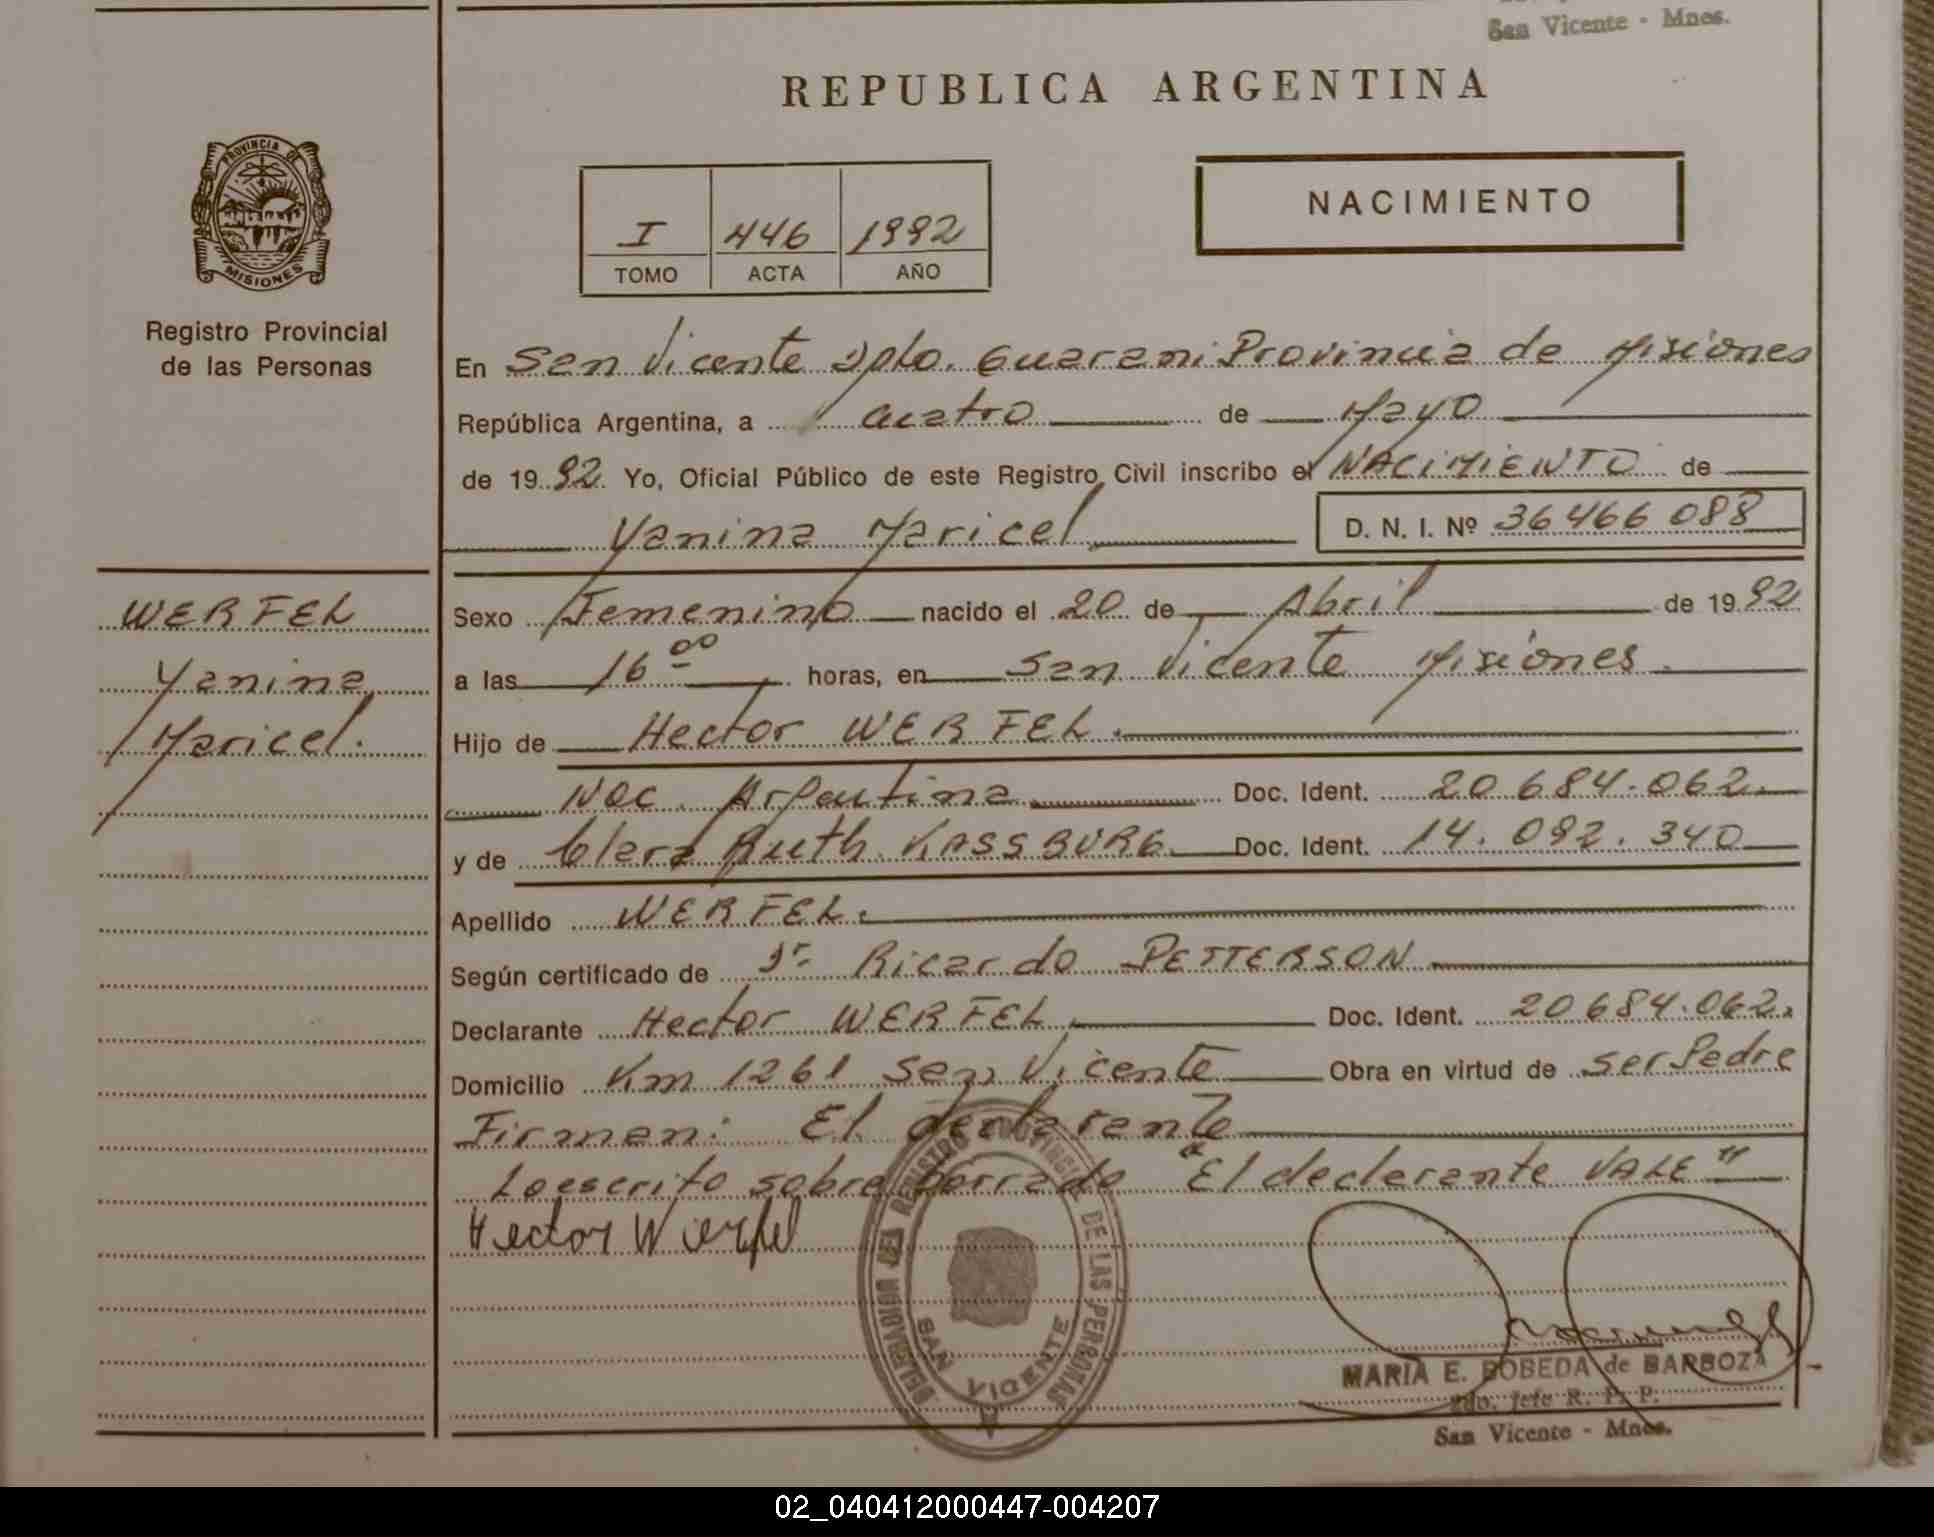 San Vicente - Mnes.
REPUBLICA ARGENTINA
PROVINCIA DE
MISIONES
Registro Provincial
de las Personas
I 446 1992
TOMO ACTA AÑO
NACIMIENTO
En San Vicente Dpto. Guarani Provincia de Misiones
República Argentina, a cuatro de Mayo
de 1992. Yo, Oficial Público de este Registro Civil inscribo el NACIMIENTO de
Yanina Maricel D. N. I. Nº 36466 088
WERFEL
Yanina
Maricel.
Sexo Femenino nacido el 20 de Abril de 1992
a las 16 00 horas, en San Vicente Misiones.
Hijo de Hector WERFEL.
Nac. Argentina Doc. Ident. 20684.062.
y de Clara Ruth KASSBURG Doc. Ident. 14.092.340
Apellido WERFEL.
Según certificado de Dr. Ricardo PETTERSON
Declarante Hector WERFEL Doc. Ident. 20684.062.
Domicilio Km 1261 San Vicente Obra en virtud de ser Padre
Firman: El declarante
Lo escrito sobre borrado "El declarante VALE"
Hector Werfel
DELEGACION DEL REGISTRO PROVINCIAL DE LAS PERSONAS
SAN VICENTE
MARIA E. BOBEDA de BARBOZA
2do. Jefe R. P. P.
San Vicente - Mnes.
02_040412000447-004207